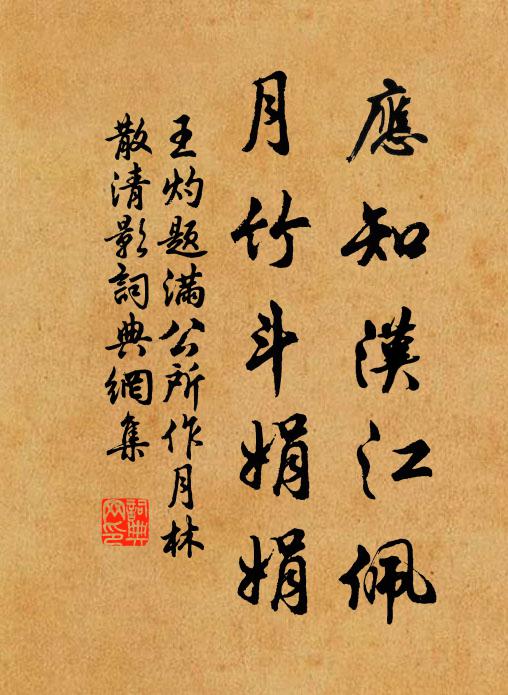 應知漢江佩
月竹斗娟娟
王灼题满公所作月林
散清影詞典網集
詞典
网印